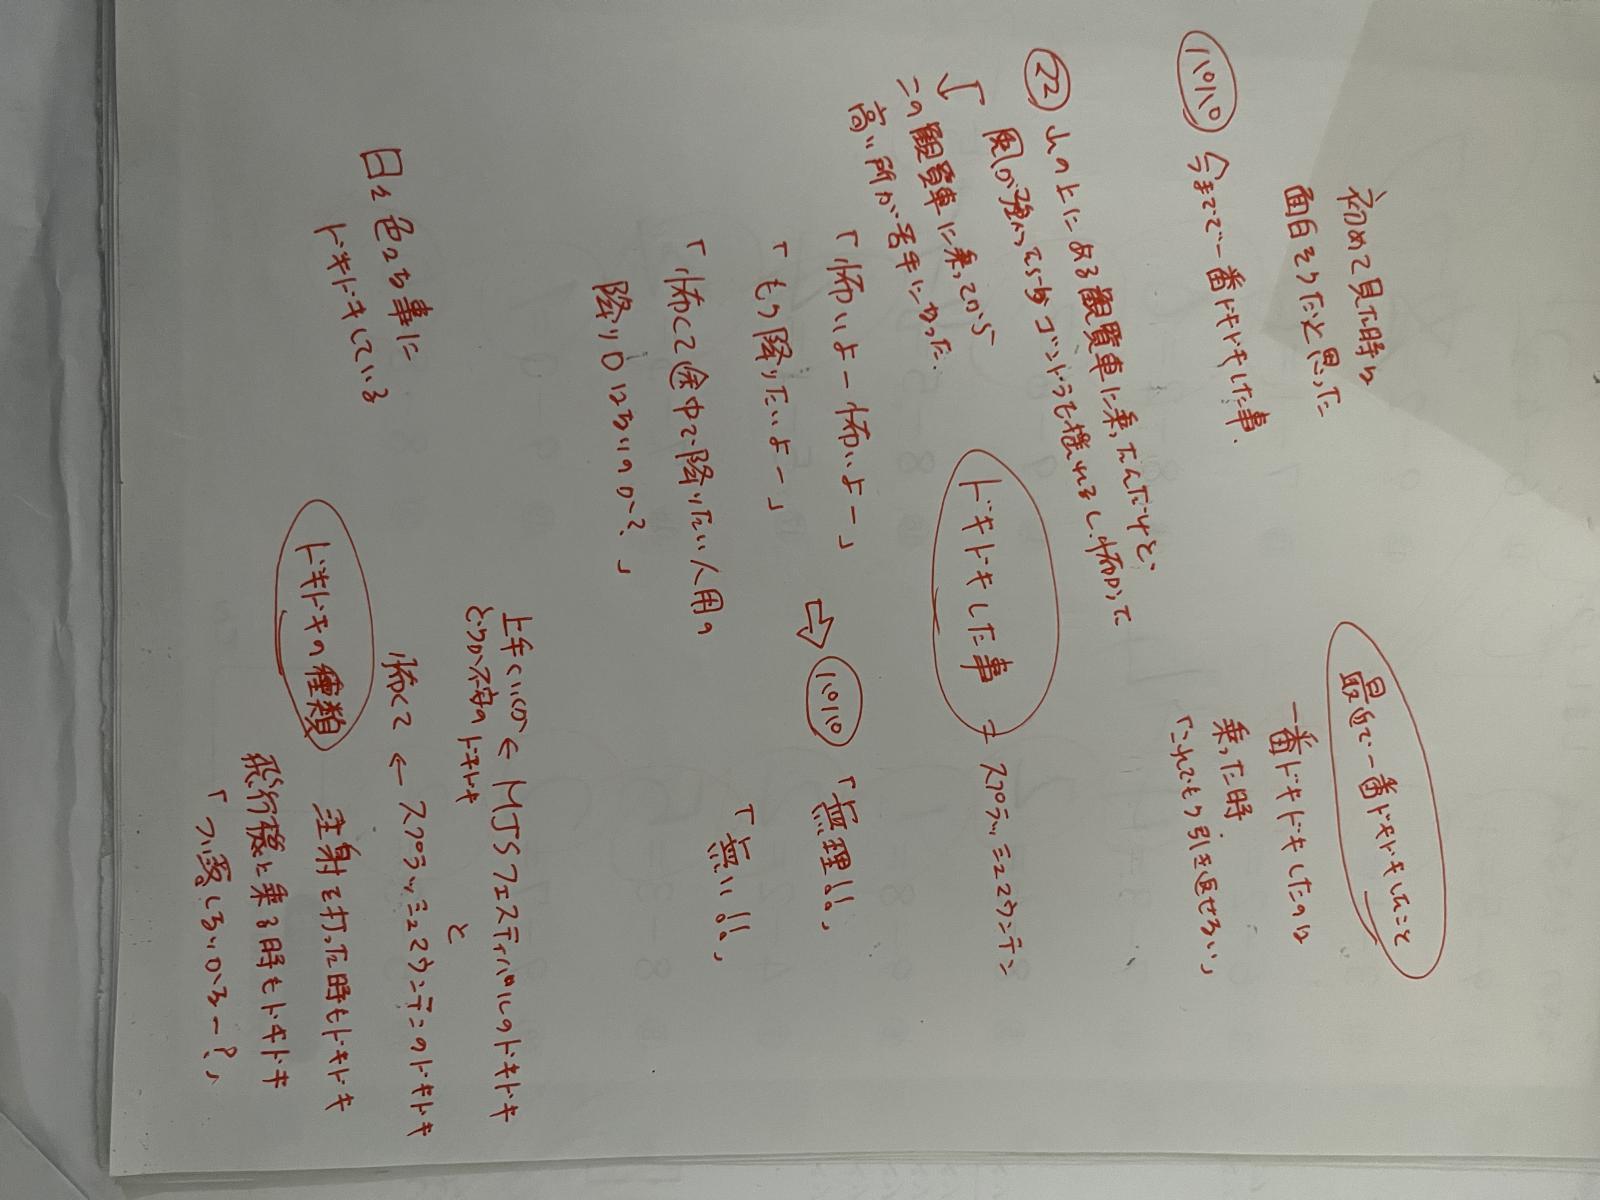 初めて見た時は
面白そうだと思った
最近で一番ドキドキしたこと
一番ドキドキしたのは
乗った時
「これでもう引き返せない」
パパ 今までで一番ドキドキした事.
ママ 山の上にある観覧車に乗ったんだけど、
ゴンドラも揺れるし、
↓「この観覧車に乗ってから
高い所が苦手になった.
ドキドキした事 = スプラッシュマウンテン
「怖いよー怖いよー」
「もう降りたいよー」
「怖くて途中で降りたい人用の
降り口はないのか?」
⇨ パパ 「無理!!」
「無い!!」
日々色々な事に
ドキドキしている
ドキドキの種類
上手くいくか ← MJSフェスティバルのドキドキ
どうか不安のドキドキ
と
怖くて ← スプラッシュマウンテンのドキドキ
注射を打った時もドキドキ
飛行機に乗る時もドキドキ
「つい愛しないかなー?」